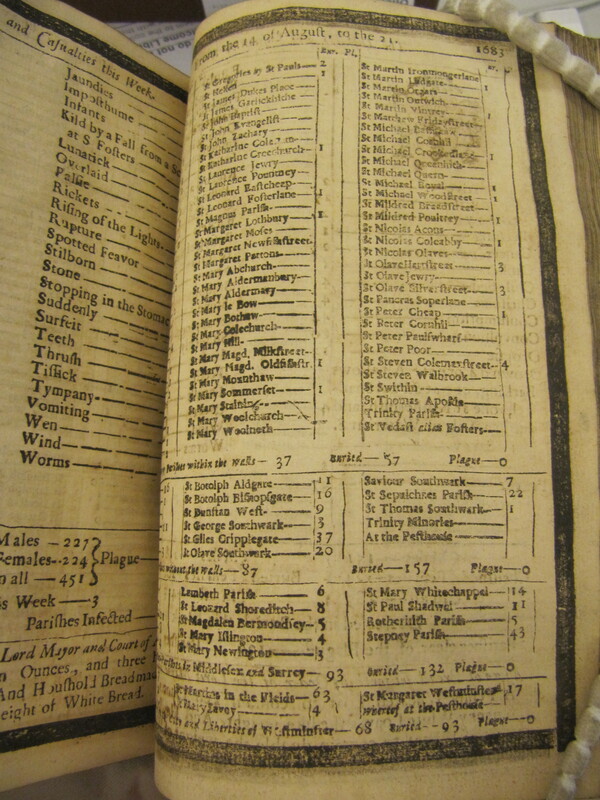 and Casualties this Week.
Jaundies
Imposthume
Infants
Kild by a Fall from a
at S Fosters
Lunatick
Overlaid
Palsie
Rickets
Rising of the Lights
Rupture
Spotted Feavor
Stilborn
Stone
Stopping in the Stomac
Suddenly
Surfeit
Teeth
Thrush
Tissick
Tympany
Vomiting
Wen
Wind
Worms
Males — 227
Females — 224 Plague
n all — 451
s Week — 3
Parishes Infected
Lord Mayor and Court of
n Ounces, and three
And Houshold Breadmad
eight of White Bread.
From the 14 of August, to the 21. 1683
Bur. Pl.
St Gregories by St Pauls — 2
St Hellen
St James Dukes Place — 1
St James Garlickhithe
St John Baptist
St John Evangelist
St John Zachary
St Katharine Colem n
St Katharine Creechurch — 1
St Laurence Jewry
St Laurence Pountney
St Leonard Eastcheap — 1
St Leonard Fosterlane
St Magnus Parish — 1
St Margaret Lothbury — 1
St Margaret Moses
St Margaret Newfishstreet
St Margaret Pattons
St Mary Abchurch
St Mary Aldermanbury
St Mary Aldermary
St Mary le Bow
St Mary Bothaw
St Mary Colechurch
St Mary Hill
St Mary Magd. Milkstreet
St Mary Magd. Oldfishstr. 1
St Mary Mounthaw
St Mary Sommerset — 1
St Mary Staining
St Mary Woolchurch
St Mary Woolnoth
St Martin Ironmongerlane
St Martin Ludgate — 1
St Martin Orgars
St Martin Outwich
St Martin Vintrey — 1
St Matthew Fridaystreet
St Michael
St Michael Cornhil
St Michael — 1
St Michael Queenhith
St Michael Quern
St Michael Royal — 1
St Michael Woodstreet — 1
St Mildred Breadstreet
St Mildred Poultrey — 1
St Nicolas Acons
St Nicolas Coleabby — 1
St Nicolas Olaves
St Olave Hartstreet — 3
St Olave Jewry
St Olave Silverstreet — 3
St Pancras Soperlane
St Peter Cheap — 1
St Peter Cornhil
St Peter Paulswharf
St Peter Poor
St Steven Colemanstreet — 4
St Steven Walbrook
St Swithin
St Thomas Apostle
Trinity Parish
St Vedast alias Fosters
Parishes within the Walls — 37 Buried — 57 Plague — 0
St Botolph Aldgate — 41
St Botolph Bishopsgate — 16
St Dunstan West — 9
St George Southwark — 3
St Giles Cripplegate — 37
St Olave Southwark — 20
Saviour Southwark — 7
St Sepulchres Parish — 22
St Thomas Southwark — 1
Trinity Minories
At the Pesthouse
without the Walls — 87 Buried — 157 Plague — 0
Lambeth Parish — 6
St Leonard Shoreditch — 8
St Magdalen Bermondsey — 5
St Mary Islington — 4
St Mary Newington — 3
St Mary Whitechappel — 14
St Paul Shadwel — 11
Rotherhith Parish — 5
Stepney Parish — 43
in Middlesex and Surrey — 93 Buried — 132 Plague — 0
St Martins in the Fields — 63
St Mary Savoy — 4
St Margaret Westminster — 17
whereof at the Pesthouse
City and Liberties of Westminster — 68 Buried — 93 Plague — 0